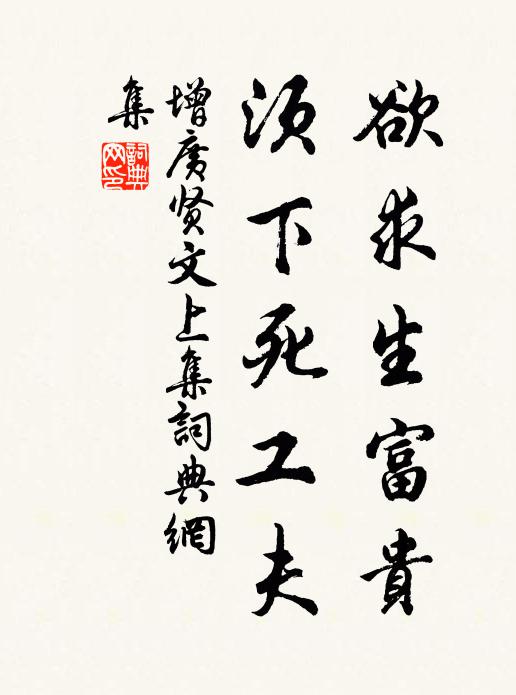 欲求生富貴
須下死工夫
增廣贤文上集詞典網
集
詞典
网印